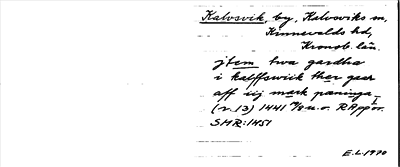 Kalvsvik, by, Kalvsviks sn,
Kinnevalds hd,
Kronob. län.
jtem twa gardha
i kalffswiik ther gaar
aff iij mark päninga
(r. 13) 1441 u.o. RAppor.
SMR:1451
E.L. 1970